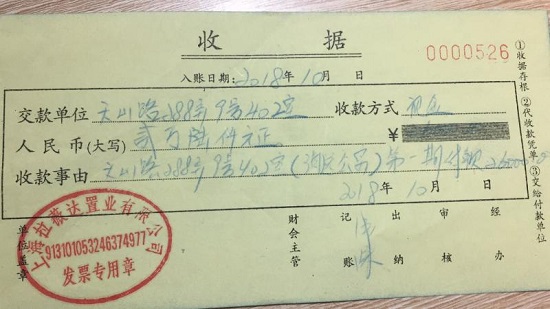 收 据
0000526
入账日期: 2018年10月 日
交款单位 天山路288弄9号402室 收款方式 现金
人民币(大写) 贰万陆仟元正 ¥
收款事由 天山路288弄9号402室 第一期付款 26000
2018年10月 日
财会主管 记账 出纳 审核 经办
单位盖章
上海拉薇达置业有限公司
913101053246374977
发票专用章
①收据存根 ②代收款凭单 ③交给付款单位